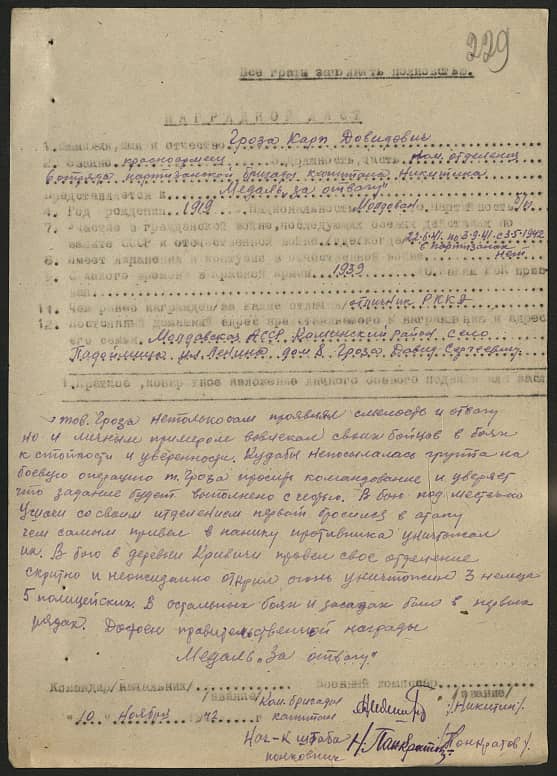 229
Все графы заполнять полностью.
НАГРАДНОЙ ЛИСТ
1. Фамилия, имя и отчество Гроза Карп Довидович
2. Звание красноармеец 3. должность, часть Ком. отделения
партизанской бригады капитана Никитина
представляется к Медаль "За отвагу"
4. Год рождения 1919 5. Национальность Молдован 6. Партийность б/п
7. Участие в гражданской войне, последующих боевых действиях по
защите СССР и отечественной войне /где, когда/
с партизанах
8. Имеет ли ранения и контузии в отечественной войне нет
9. С какого времени в Красной Армии 1939
11. Чем ранее награжден /за какие отличия/ отличник РККА
12. Постоянный домашний адрес представляемого к награждению и адрес
его семьи Молдавская АССР район село
ул. Ленина дом Гроза Довид Сергеевич
1. Краткое, конкретное изложение личного боевого подвига или заслуг
тов. Гроза нетолько сам проявлял смелость и отвагу
но и личным примером вовлекал своих бойцов в боях
к стойкости и уверенности. Кудабы непосылалась группа на
боевую операцию т. Гроза просит командование и уверяет
что задание будет выполнено с честью. В бою под местечко
Узмены со своим отделением первый бросился в атаку
чем самым привел в панику противника уничтожал
их. В бою в деревни Кривичи провел свое отделение
скритно и неожиданно открыл огонь уничтожено 3 немца
5 полицейских. В остальных боях и засадах был в первых
рядах. Достоен правительственной награды
Медаль "За отвагу"
Командир/начальник/ Военный комиссар
/звание/ /звание/
"10" Ноября 1942 г Ком. бригады капитан /Никитин/
Нач-к штаба полковник Н. Панкратов /Панкратов/